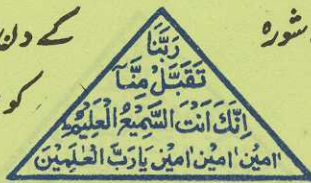 شورہ
کے دن
کو
رَبَّنَا
تَقَبَّلْ مِنَّآ
اِنَّكَ اَنْتَ السَّمِيْعُ الْعَلِيْمُ
اٰمِيْن اٰمِيْن اٰمِيْن يَارَبَّ الْعٰلَمِيْنَ